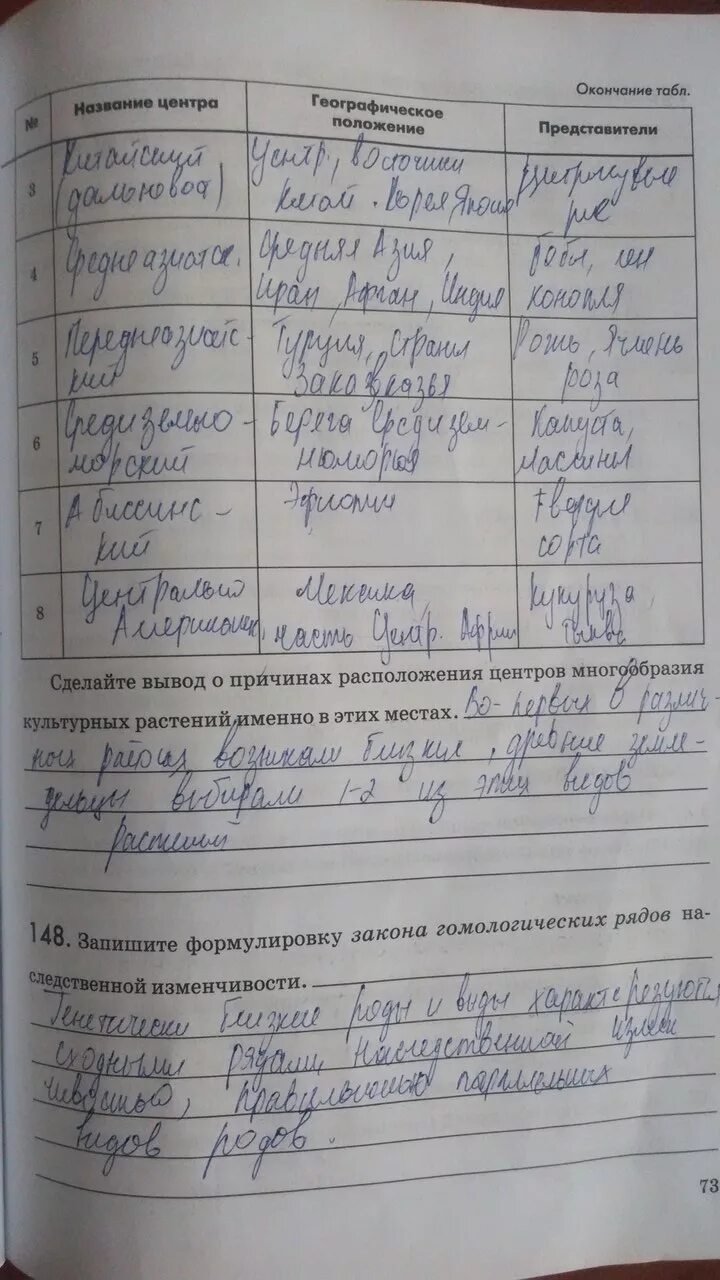 Окончание табл.
№ Название центра Географическое положение Представители
3 Китайский Центр, восточный Цитрусовые
Китай. Корея, Япония
4 Среднеазиатск. Средняя Азия, Бобы, лен
Иран, Афган, Индия конопля
5 Переднеазиатс- Турция, страны Рожь, Ячмень
кий Закавказья роза
6 Средиземно- Берега Средизем- Капуста,
морский номорья маслины
7 Абиссинс- Эфиопия Твердые
кий сорта
8 Центрально Мексика, Кукуруза,
Американск. часть Центр. Африки тыква
Сделайте вывод о причинах расположения центров многообразия
культурных растений именно в этих местах. Во-первых в различ-
ных возникали близкие, древние земле-
дельцы выбирали 1-2 из этих видов
растений
148. Запишите формулировку закона гомологических рядов на-
следственной изменчивости.
Генетически близкие роды и виды характеризуются
сходными рядами наследственной измен
чивостью, параллельных
видов родов.
73